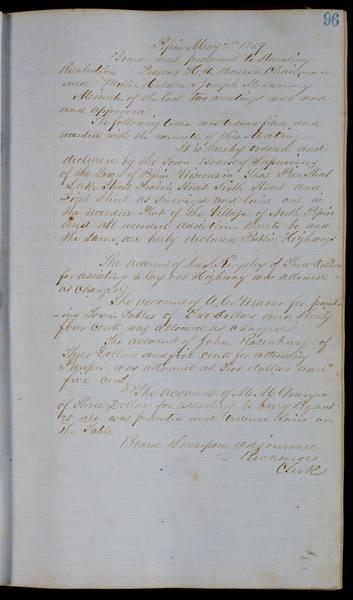 96
Pepin May 7th 1859
Board met pursuant to standing
Resolution Present H. D. Barron Chairman
and Holden & Joseph Manning
Minutes of the last two meetings was read
and approved
The following order was filed and
recorded with the minutes of this Meeting
It is hereby ordered and
declared by the Town Board of Supervisors
of the town of Pepin Wisconsin That Pine Street
Lake Street Prairie Street Sixth Street and
First Street as Surveyed and laid out in
the recorded Plat of the Village of North Pepin
and all recorded addition thereto be and
the same are herby declared Public Highways
The account of of Three Dollars
for assisting to lay out Highway was allowed
as charged
The account of A. C. for print
-ing Town Tables of Two dollars and
four cents was allowed as charged
The account of John of
Three Dollars and five cents for attending
Pauper was allowed at Two dollars and
five cents
The Account of M. M. Granger
of Three Dollars for assisting to
was presented and ordered laid on
the Table
Board thereupon adjourned
Clerk